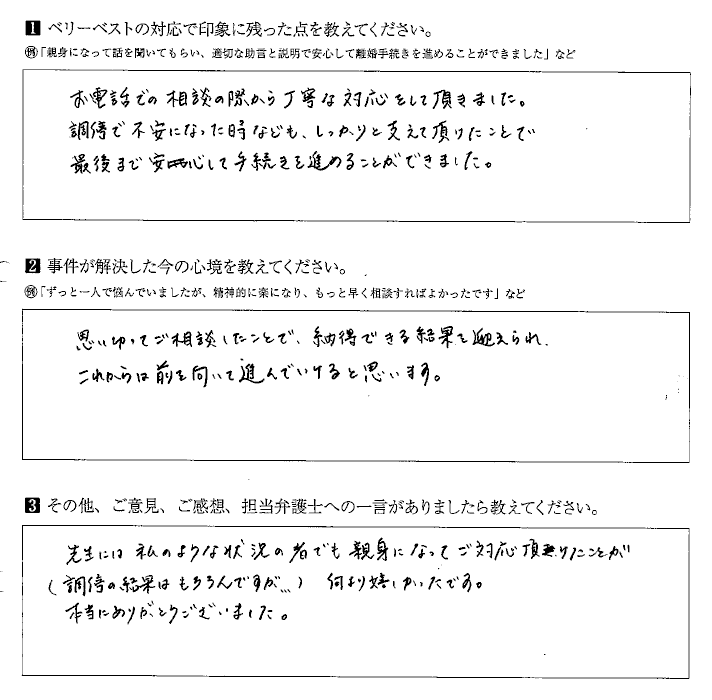 1 ベリーベストの対応で印象に残った点を教えてください。
例「親身になって話を聞いてもらい、適切な助言と説明で安心して離婚手続きを進めることができました」など
お電話での相談の際から丁寧な対応をして頂きました。
調停で不安になった時なども、しっかりと支えて頂けたことで
最後まで安心して手続きを進めることができました。
2 事件が解決した今の心境を教えてください。
例「ずっと一人で悩んでいましたが、精神的に楽になり、もっと早く相談すればよかったです」など
思い切ってご相談したことで、納得できる結果を迎えられ、
これからは前を向いて進んでいけると思います。
3 その他、ご意見、ご感想、担当弁護士への一言がありましたら教えてください。
先生には私のような状況の者でも親身になってご対応頂けたことが
(調停の結果はもちろんですが…) 何より嬉しかったです。
本当にありがとうございました。